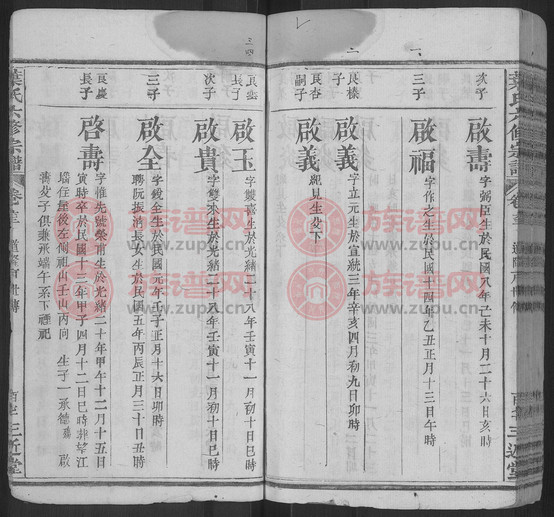 葉氏六修宗譜
次子
啟壽
字弼臣生於民國八年己未十月二十六日亥時
三子
啟福
字作之生於民國十四年乙丑正月十三日午時
良榛子
啟義
字立元生於宣統三年辛亥四月初九日卯時
良杏嗣子
啟義
親見生父下
三近堂
長子
啟玉
字雙喜生於光緒二十八年壬寅十一月初十日巳時
次子
啟貴
字雙來生於光緒二十八年壬寅十一月初十日巳時
三子
啟全
字銳金生於民國元年壬子正月十六日卯時
聘阮振清長女生於民國五年丙辰正月三十日丑時
良慶長子
啟壽
字惟先號榮甫生於光緒二十年甲午十二月十五日
寅時卒於民國十三年甲子四月十二日巳時葬望江
壋住屋後左側祖山壬山丙向 生子一承德
葉氏六修宗譜
三近堂
族谱网
zupu.cn